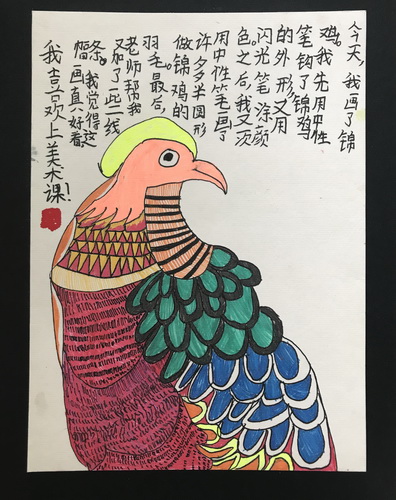 今天，我画了锦
鸡。我先用中性
笔钩了锦鸡
的外形，又用
闪光笔涂颜
色。之后，我又次
用中性笔画了
许多半圆形
做锦鸡的
羽毛。最后，
老师帮我
又加了一些线
条。我觉得这
幅画真好看
我喜欢上美术课！